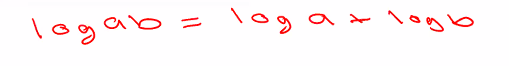 log ab = log a + log b